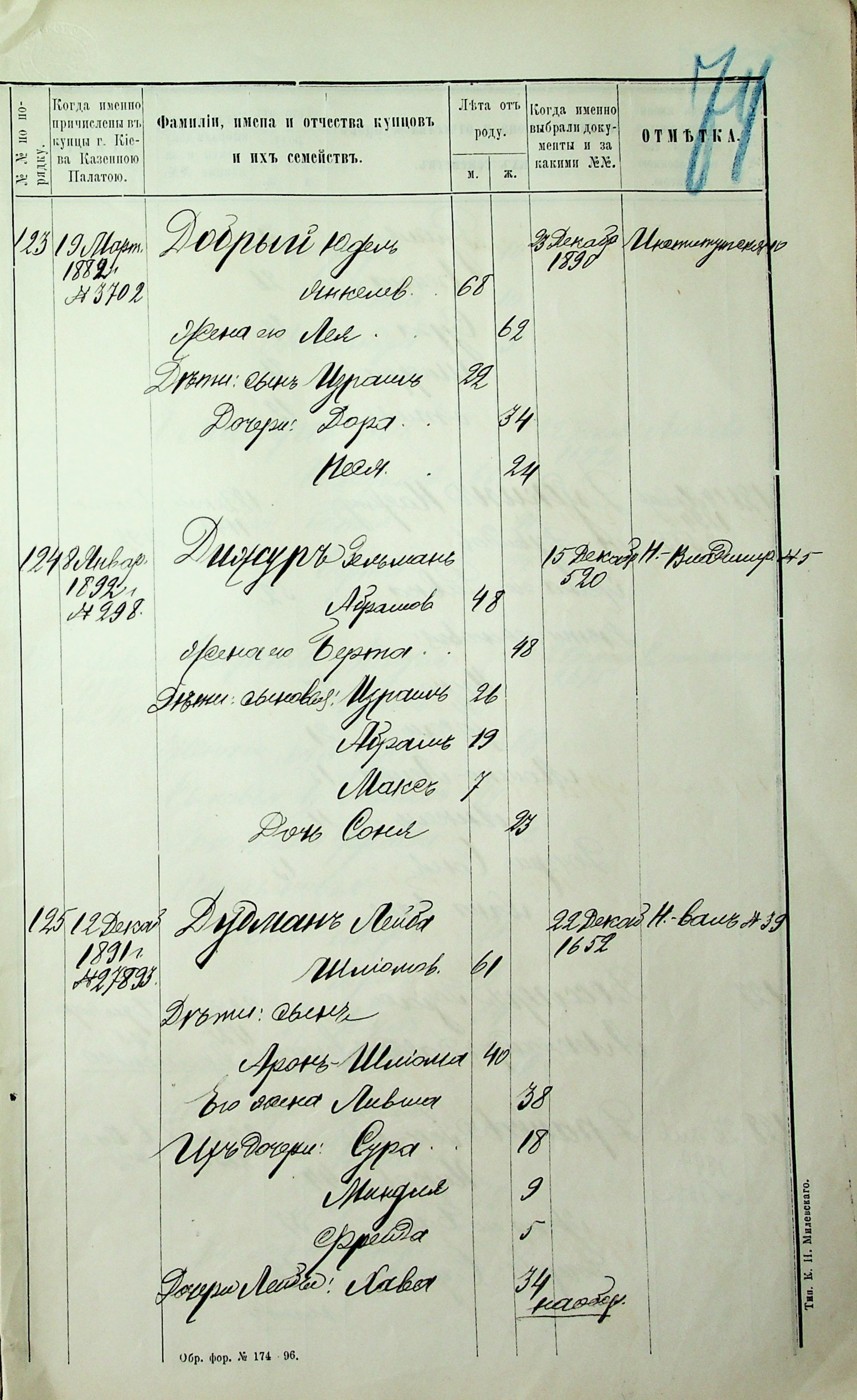 74
№№ по по-
рядку.
Когда именно
причислены въ
купцы г. Кіе-
ва Казенною
Палатою.
Фамиліи, имена и отчества купцовъ
и ихъ семействъ.
Лѣта отъ
роду.
м. ж.
Когда именно
выбрали доку-
менты и за
какими №№.
ОТМѢТКА.
123 19 Март. Добрый Юдель 23 Декабр Институтская 10
1882 г. 1890
№ 3702 Янкелев. 68
Жена его Лея 62
Дѣти: сынъ Израиль 22
Дочери: Дора 34
Неся 24
124 8 Январ. Дижуръ Зельманъ 15 Декаб Н.-Владимир № 5
1892 г. 520
№ 298. Абрамов 48
Жена его Берта 48
Дѣти: сыновья: Израиль 26
Абрамъ 19
Максъ 7
Дочь Соня 23
125 12 Декаб Дудманъ Лейба 22 Декаб Н.-Валъ № 39
1891 г. 1652
№ 27893. Шліомов. 61
Дѣти: сынъ
Аронъ-Шліома 40
Его жена Лифша 38
Ихъ дочери: Сура 18
Миндля 9
Фрейда 5
Дочери Лейбы: Хава 34
на обор.
Обр. фор. № 174 - 96.
Тип. К. Н. Милевскаго.